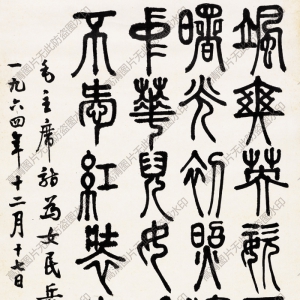 颯爽英姿
曙光初照
中華兒女
不愛紅裝
毛主席詩為女民兵
一九六四年十二月十七日